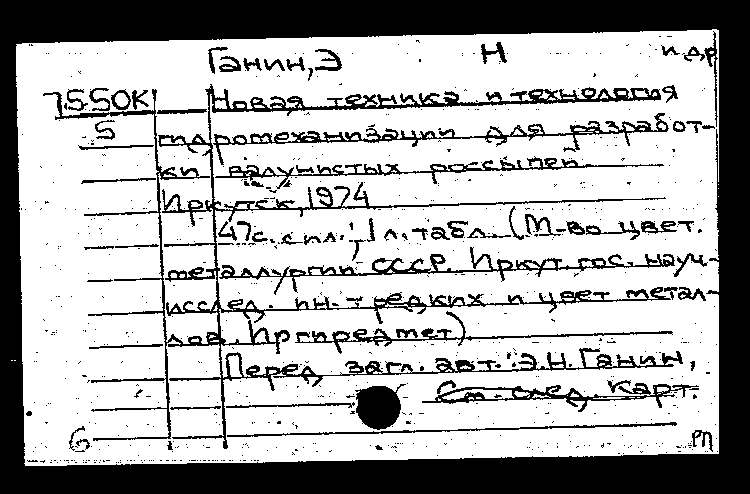 Ганин, Э Н и др
7550К Новая техника и технология
5 гидромеханизации для разработ-
ки валунистых россыпей.
Иркутск, 1974
47с. с ил.; 1 л. табл. (М-во цвет.
металлургии СССР. Иркут. гос. науч-
исслед. ин.-т редких и цвет метал-
лов. Иргиредмет).
Перед загл. авт.: Э.Н. Ганин,
См. след. карт.
6 РП